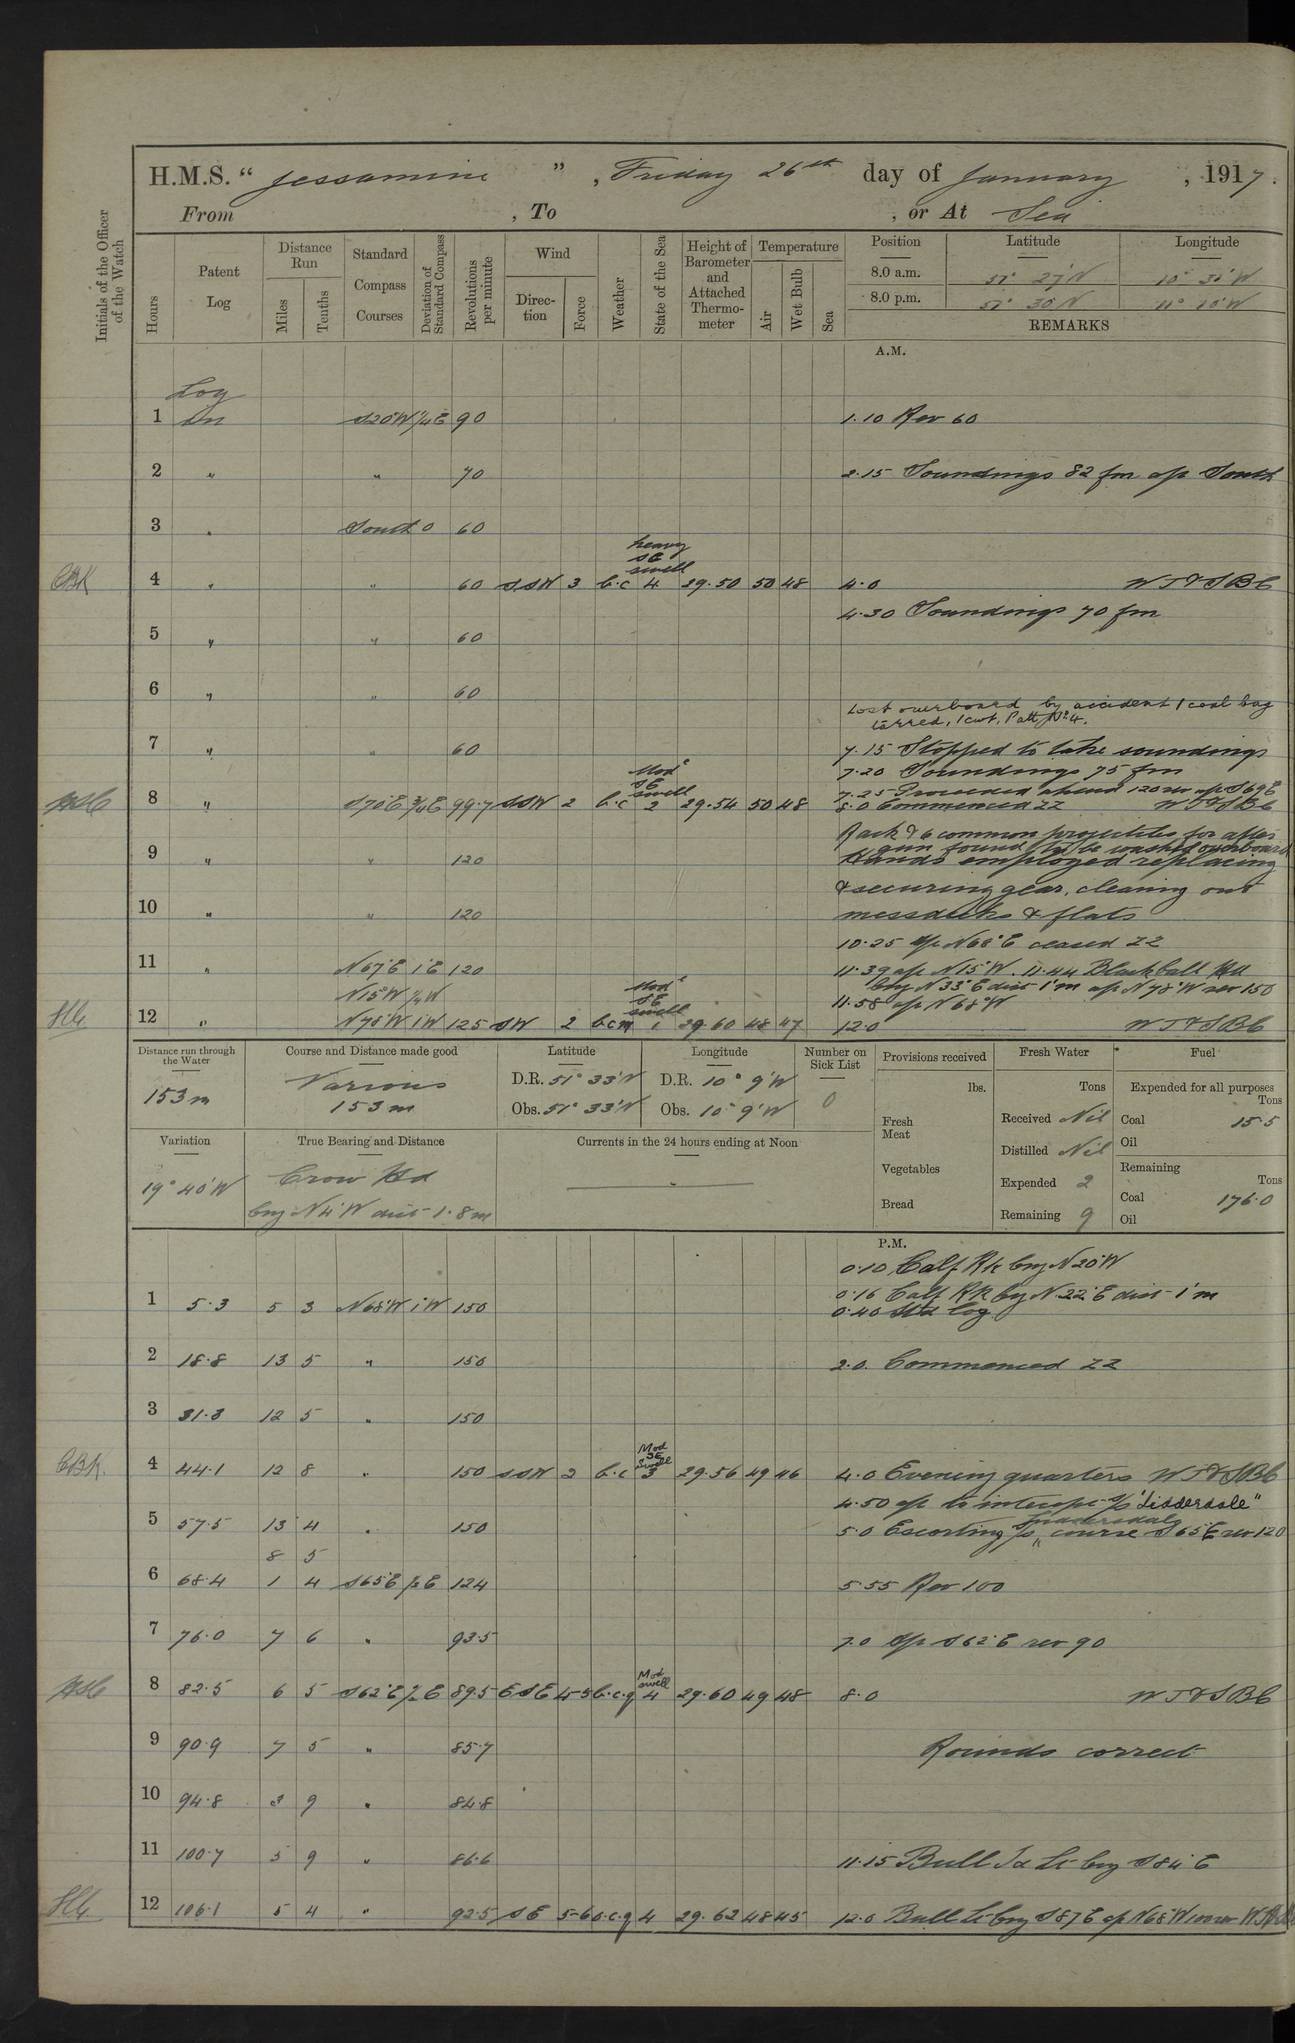 H.M.S. “ Jessamine ” , Friday 26th day of January , 1917.
From , To , or At Sea
Initials of the Officer of the Watch
Hours
Patent Log
Distance Run
Miles
Tenths
Standard Compass Courses
Deviation of Standard Compass
Revolutions per minute
Wind
Direc-tion
Force
Weather
State of the Sea
Height of Barometer and Attached Thermo-meter
Temperature
Air
Wet Bulb
Sea
Position Latitude Longitude
8.0 a.m. 51° 27'N 10° 31'W
8.0 p.m. 51° 30'N 11° 10'W
REMARKS
A.M.
Log
1 in S20°W ¼E 90 1.10 Rev 60
2 " " 70 2.15 Soundings 82 fm a/c South
3 " South 0 60
heavy SE swell
CBK 4 " " 60 SSW 3 b.c 4 29.50 50 48 4.0 WT&SBC
4.30 Soundings 70 fm
5 " " 60
6 " " 60
Lost overboard by accident 1 coal bag
tarred, 1 cwt, Patt. No 4.
7 " " 60 7.15 Stopped to take soundings
7.20 Soundings 75 fm
Mod SE swell
7.25 Proceeded ahead 120 rev a/c S69E
8 " S70°E ¾E 99.7 SSW 2 b.c 2 29.54 50 48 8.0 Commenced ZZ WT&SBC
Rack & 6 common projectiles for after
gun found to be washed overboard
9 " " 120 Hands employed replacing
& securing gear, cleaning out
10 " " 120 messdecks & flats
10.25 a/c N68°E ceased ZZ
11 " N67°E 1°E 120 11.39 a/c N15°W. 11.44 Blackball Hd
brg N33°E dist 1'm a/c N78°W rev 150
N15°W ¼W
Mod SE swell
11.58 a/c N68°W
12 " N78°W 1°W 125 SW 2 b.c.m 1 29.60 48 47 12.0 WT&SBC
Distance run through the Water
153 m
Course and Distance made good
Various
153 m
Latitude
D.R. 51° 33'N
Obs. 51° 33'N
Longitude
D.R. 10° 9'W
Obs. 10° 9'W
Number on Sick List
0
Provisions received
lbs.
Fresh Meat
Vegetables
Bread
Fresh Water
Tons
Received Nil
Distilled Nil
Expended 2
Remaining 9
Fuel
Expended for all purposes
Tons
Coal 15.5
Oil
Remaining
Tons
Coal 176.0
Oil
Variation
19° 40'W
True Bearing and Distance
Crow Hd
brg N4°W dist 1.8 m
Currents in the 24 hours ending at Noon
P.M.
0.10 Calf Rk brg N20°W
0.16 Calf Rk brg N.22°E dist 1'm
1 5.3 5 3 N68°W 1°W 150 0.40 Std log
2 18.8 13 5 " 150 2.0 Commenced ZZ
3 31.3 12 5 " 150
Mod SE swell
CBK. 4 44.1 12 8 " 150 SSW 2 b.c 3 29.56 49 46 4.0 Evening quarters WT&SBC
4.50 a/c to intercept S/S "Lidderdale"
5 57.5 13 4 " 150 5.0 Escorting S/S " course S65°E rev 120
8 5
6 68.4 1 4 S65°E ½E 124 5.55 Rev 100
7 76.0 7 6 " 93.5 7.0 a/c S62°E rev 90
Mod swell
8 82.5 6 5 S62°E ½E 89.5 ESE 4-5 b.c.q 4 29.60 49 48 8.0 WT&SBC
9 90.9 7 5 " 85.7 Rounds correct
10 94.8 3 9 " 84.8
11 100.7 5 9 " 86.6 11.15 Bull Id Lt brg S84°E
12 106.1 5 4 " 92.5 SE 5-6 o.c.q 4 29.62 48 45 12.0 Bull Lt brg S87E a/c N68°W 100 rev